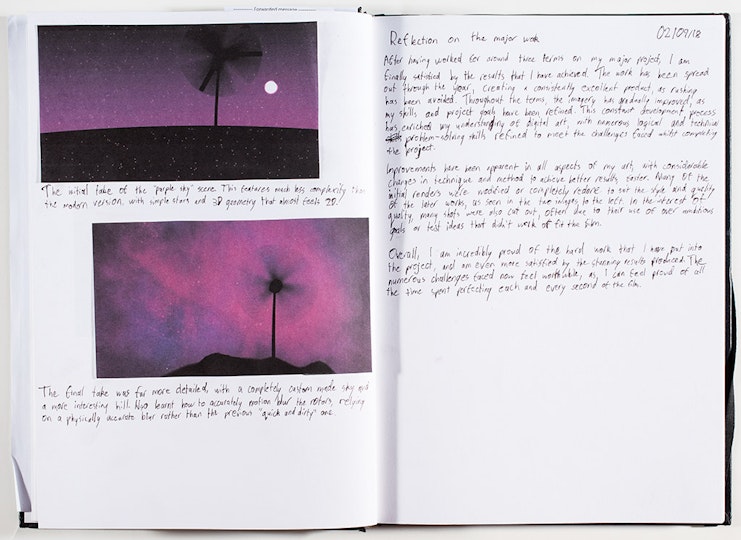 Forwarded message
The initial take of the "purple sky" scene. This features much less complexity than
the modern version, with simple stars and 3D geometry that almost feels 2D.
The final take was far more detailed, with a completely custom made sky and
a more interesting hill. Also learnt how to accurately motion blur the rotors, relying
on a physically accurate blur rather than the previous "quick and dirty" one.
Reflection on the major work
02/09/18
After having worked for around three terms on my major project, I am
finally satisfied by the results that I have achieved. The work has been spread
out through the year, creating a consistently excellent product, as rushing
has been avoided. Throughout the terms, the imagery has gradually improved, as
my skills and project goals have been refined. This constant development process
has enriched my understanding of digital art, with numerous logical and technical
problem-solving skills refined to meet the challenges faced whilst completing
the project.
Improvements have been apparent in all aspects of my art, with considerable
changes in technique and method to achieve better results faster. Many of the
initial renders were modified or completely redone to suit the style and quality
of the later works, as seen in the two images to the left. In the interest of
quality, many shots were also cut out, often due to their use of over ambitious
goals or test ideas that didn't work or fit the film.
Overall, I am incredibly proud of the hard work that I have put into
the project, and am even more satisfied by the stunning results produced. The
numerous challenges faced now feel worthwhile, as, I can feel proud of all
the time spent perfecting each and every second of the film.